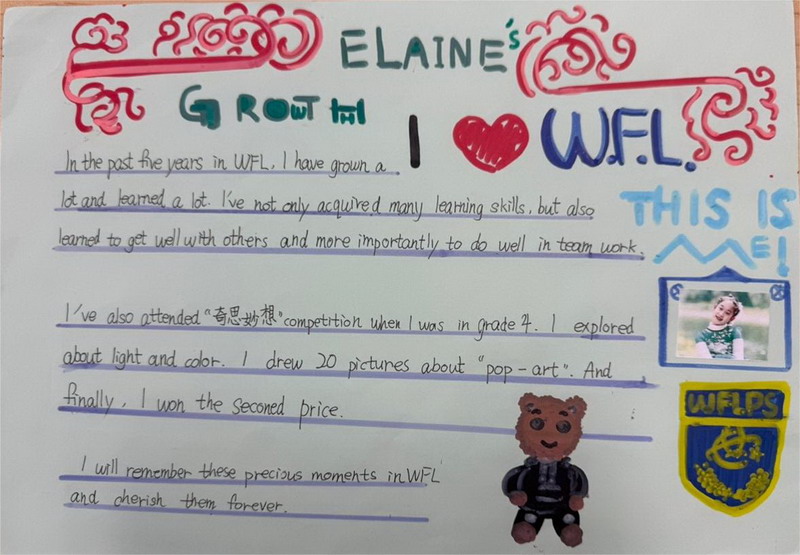 ELAINE's
GROWTH
I ❤ W.F.L.
In the past five years in WFL, I have grown a
lot and learned a lot. I've not only acquired many learning skills, but also
learned to get well with others and more importantly to do well in team work.
THIS IS
ME!
I've also attended "奇思妙想" competition when I was in grade 4. I explored
about light and color. I drew 20 pictures about "pop-art". And
finally, I won the seconed price.
WFLPS
I will remember these precious moments in WFL
and cherish them forever.